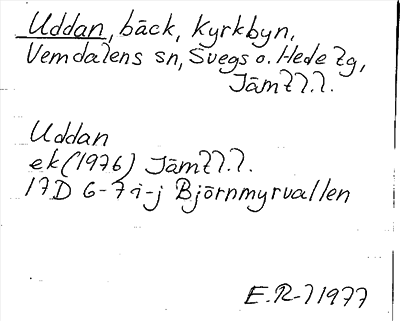 Uddan, bäck, Kyrkbyn,
Vemdalens sn, Svegs o. Hede tg,
Jämtl.l.
Uddan
ek (1976) Jämtl.l.
17D 6-7 i-j Björnmyrvallen
E.R-l 1977